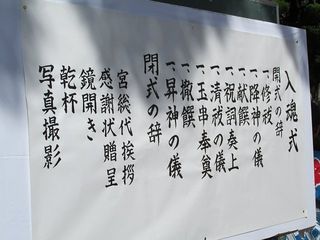 入魂式
開式の辞
一、修祓
一、降神の儀
一、献饌
一、祝詞奏上
一、清祓の儀
一、玉串奉奠
一、撤饌
一、昇神の儀
閉式の辞
宮総代挨拶
感謝状贈呈
鏡開き
乾杯
写真撮影